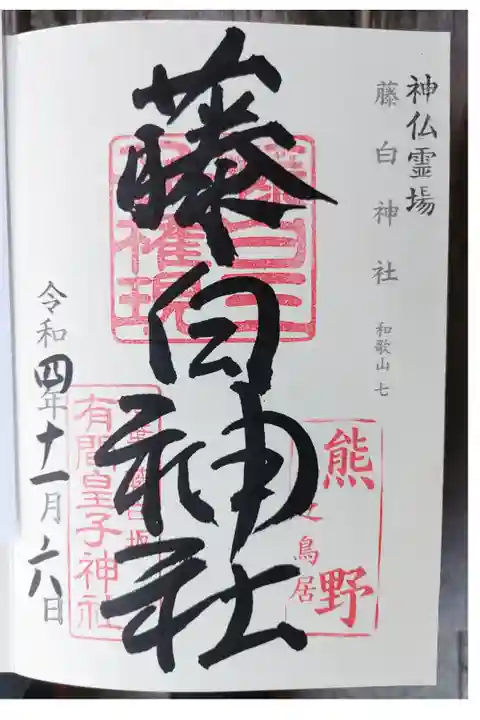 神仏霊場
藤白神社 和歌山 七
藤白神社
権現
熊野
之鳥居
有間皇子神社
令和四年十一月六日